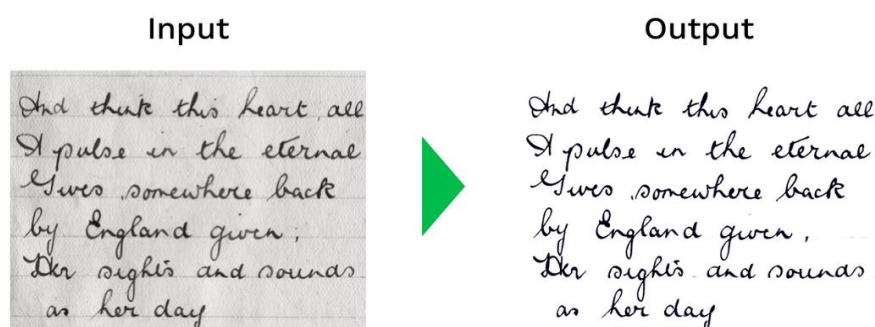 Input
Output
And think this heart, all
A pulse in the eternal
Gives somewhere back
by England given;
Her sights and sounds
as her day
And think this heart all
A pulse in the eternal
Gives somewhere back
by England given,
Her sights and sounds
as her day